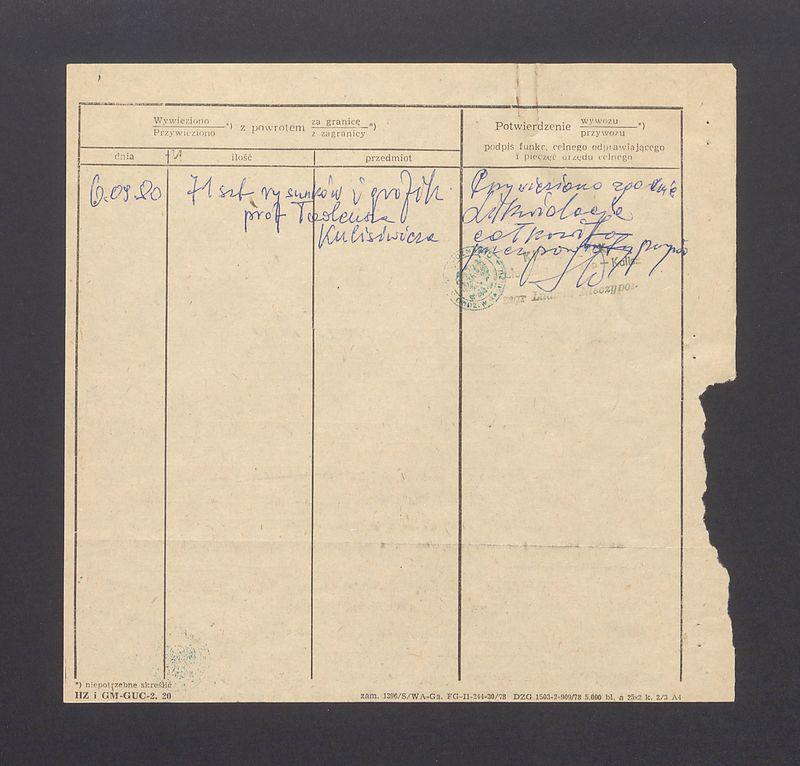 Wywieziono
Przywieziono *) z powrotem za granicę
z zagranicy *)
Potwierdzenie wywozu
przywozu *)
podpis funkc. celnego odprawiającego
i pieczęć urzędu celnego
dnia
ilość
przedmiot
6.09.80
71 szt rysunków i grafik
prof Tadeusza
Kulisiewicza
Przywieziono zgodnie
Likwidacja
całkow
mgr
*) niepotrzebne skreślić
HZ i GM-GUC-2, 20
zam. 1396/S/WA-Ga. FG-II-244-30/78 DZG 1503-2-909/78 5.000 bl. a 25×2 k. 2/3 A4